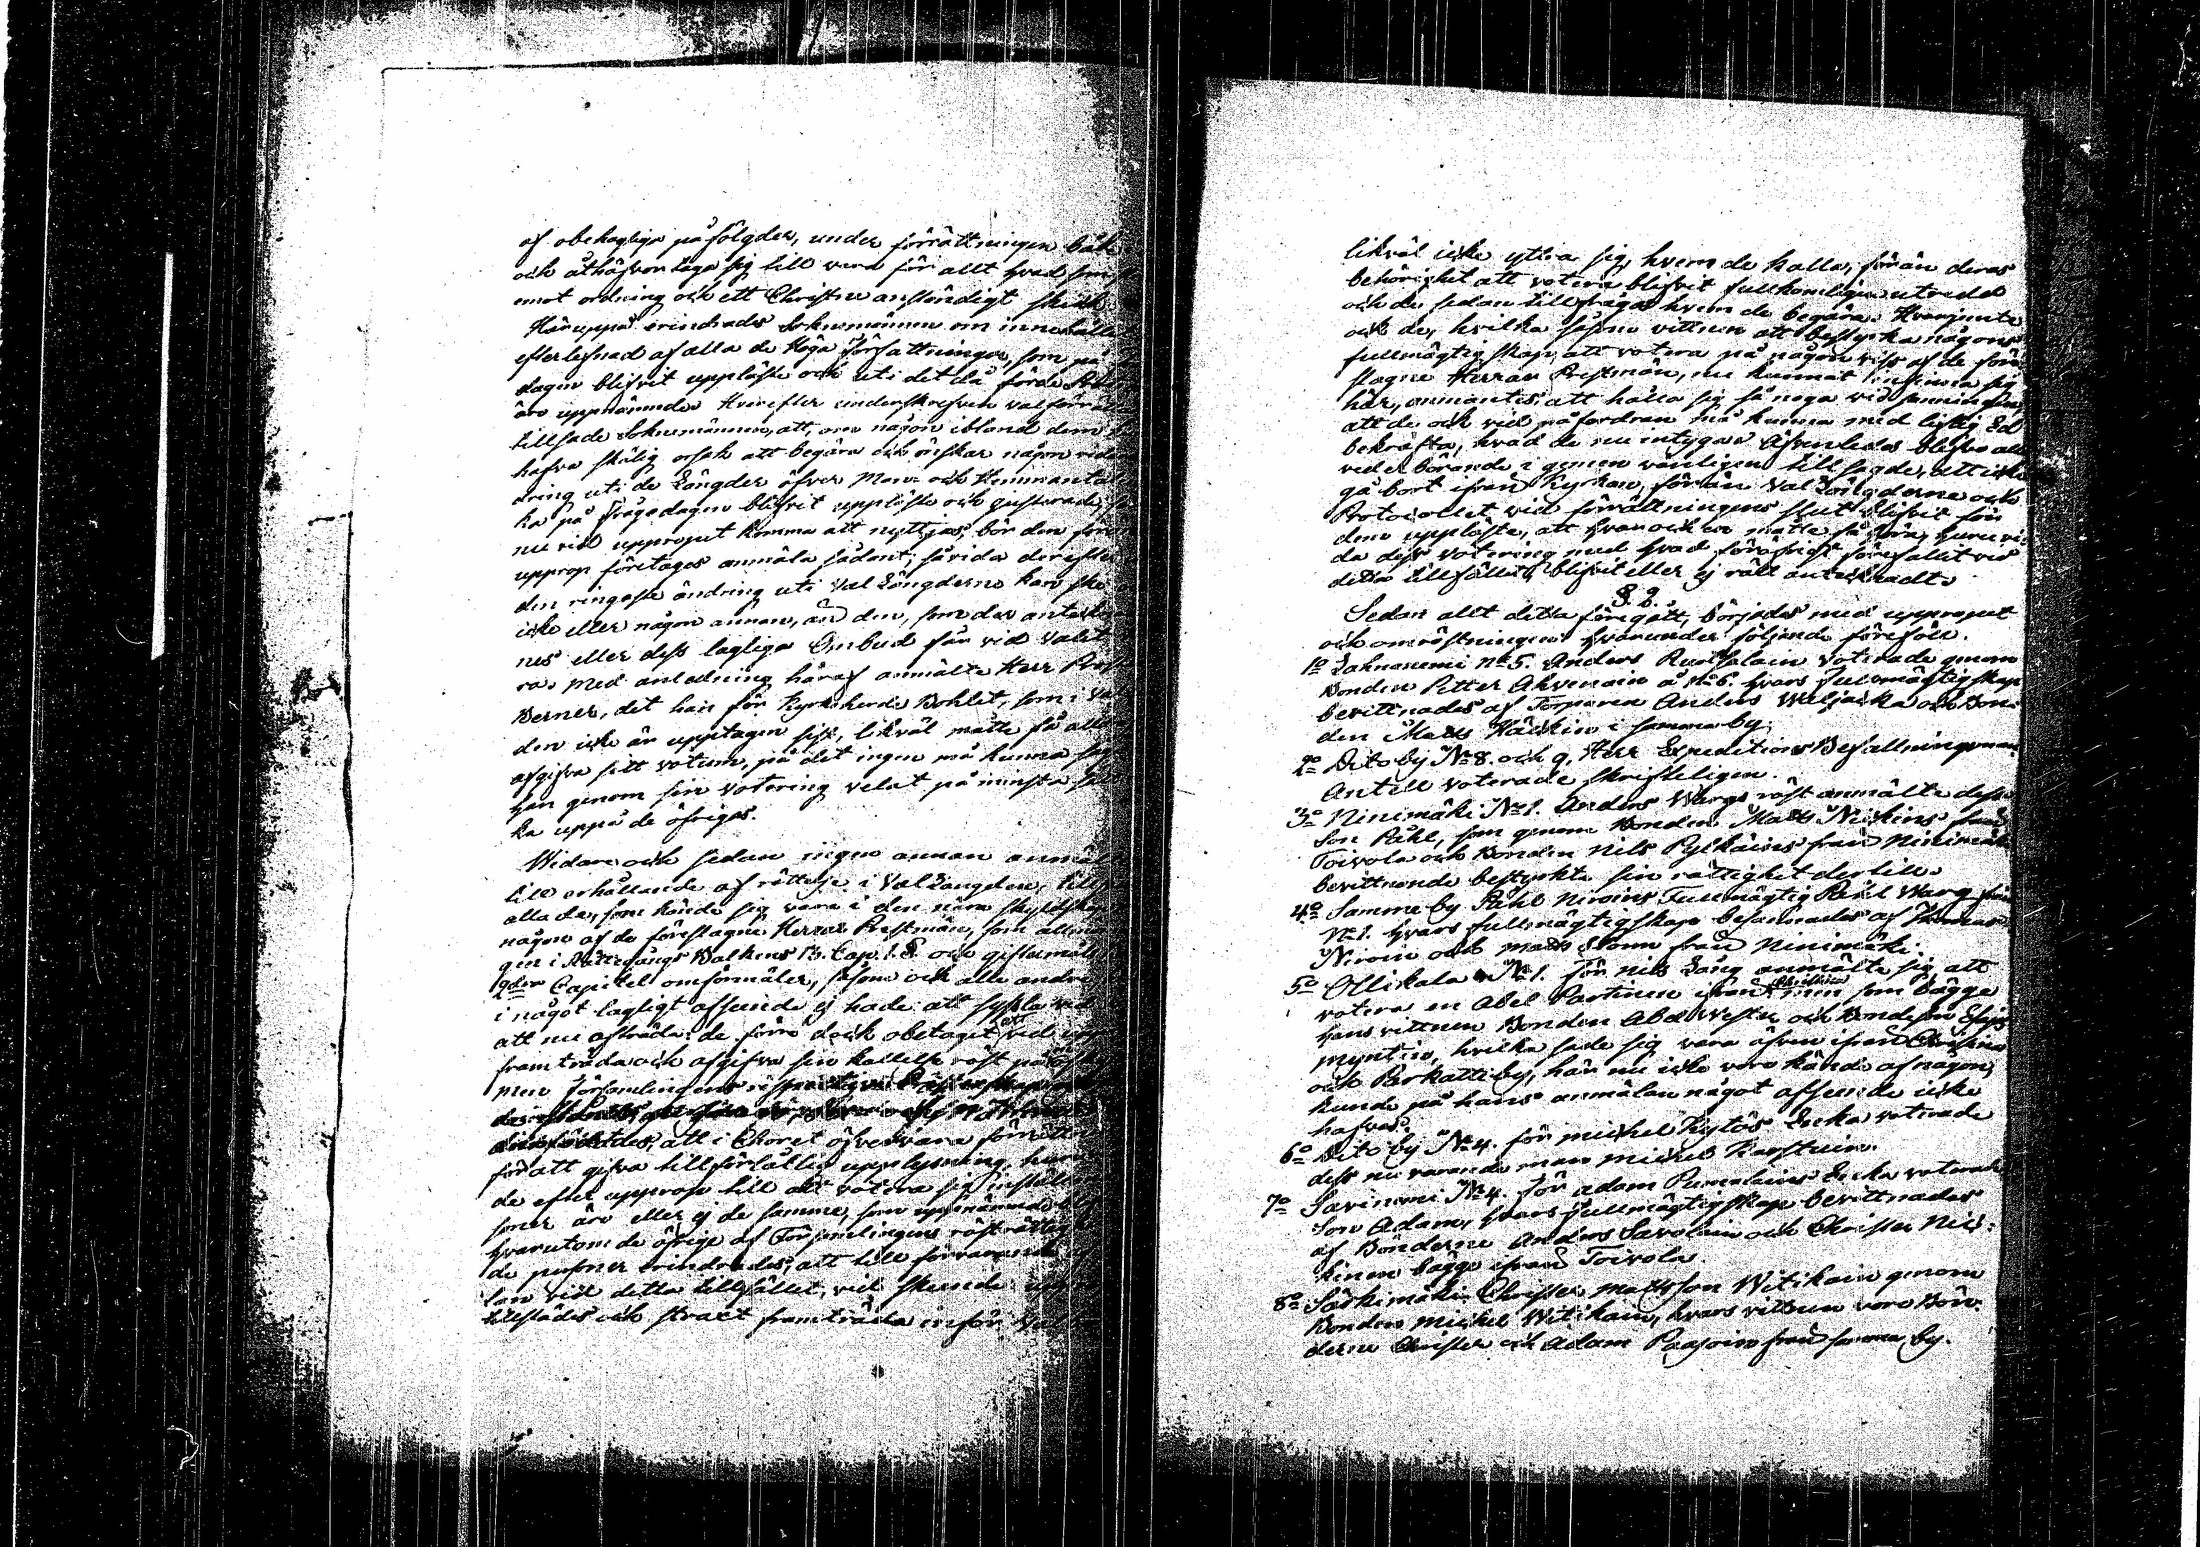 af obehagliga påfölgder, under förrättningen både
och åthäfvor taga sig till vara för allt hvad som
emot ordning och ett Christne anständigt skick
Häruppå erindrades Soknemännen om innehållet
efterlefnad af alla de Höga Författningar, som på
dagen blifvit uppläste och uti det då förde
äro uppnämnde. Hvarefter underskrefven valförrät
tillsade Soknemännen, att, om någon ibland dem
hafva skälig orsak att begära och önskar någon
dring uti de Längder öfver Man- och Hemmantal
ka på Frågodagen blifvit uppläste och justerade,
nu vid uppropet komma att nyttjas, bör den förr
upprop företages anmäla sådant; såvida derefter
den ringaste ändring uti Val Längderne kan ske
icke eller någon annan, än den, som der anteckn
nes eller dess laglige Ombud får vid Valet
ra. Med anledning häraf anmälte Herr
Berner, det han för Kyrkoherde Bohlet, som i
den icke är upptagen sist, likväl måtte få aller
afgifva sitt votum, på det ingen må kunna
han genom sin votering velat på minsta
ka uppå de öfriga.
Widare och sedan ingen annan anmäl
till erhållande af rättelse i Val Längden, till
alla de, som kände sig vara i den nära skyldskap
någon af de föreslagne Herrar Prestmän, som
gen i Rättegångs Balkens 13. Cap. 1. § och giftermåls
2dra Capitel omförmäler, såsom och alla andre
i något lagligt afseende ej hade att syssla vid
att nu afträda: de förre dock obetaget att vid
framträda och afgifva sin kallelse röst
men Församlingens
att i Choret öfvervara förrätt
för att gifva tillförlåtlig upplysning, huru
de efter upprop till att votera sig inställ
soner äro eller ej de samme, som uppnämnde
hvarutom de öfrige af Församlingens röst rättig
de personer erindrades, att till förvarande
lan vid detta tillfället, vid skeende
tillstädes och stract framträda inför Val
likväl icke yttra sig, hvem de kalla, förän deras
behörighet att votera blifvit fullkomligen utredd
och de sedan tillfrågas hvem de begära. Hvarjemte
och de, hvilka såsom vittnen att bestyrka någons
fullmägtigskap att votera på någon viss af de före
slagne Herrar Prestmän, nu kunnat infinna sig
här, anmantes, att hålla sig så noga vid sanningen,
att de ock vid påfordran må kunna med liflig Ed
bekräfta, hvad de nu intyga. Äfvenledes blefvo alle
vederbörande i gemen vänligen tillsagde, att icke
gå bort ifrån Kyrkan, förän Val Längderne och
Protocollet vid förrättningens slut blifvit för
dem uppläste, att hvar och en måtte få höra, huruvi-
da dess votering med hvad föröfrigt förefallit vid
detta tillfället, blifvit eller ej rätt antecknadt.
§. 2.
Sedan allt detta föregått, börjades med uppropet
och omröstningen: hvarunder följande förefoll.
1o Lahnaniemi No 5. Anders Ruotsalain voterade genom
Bonden Petter Ahvenain å No 6. hvars fullmägtigskap
bevittnades af Torparen Anders Weljacka och Bon-
den Matts Häckin i samma by.
2o Dito by No 8. och 9. Herr Expeditions Befallningsman
Antell voterade skrifteligen.
3o Ninimäki No 1. Anders Wargs röst anmälte dess
Son Påhl, som genom Bonden Matts Nickins från
Toivola och Bonden Nils Pylkäins från Ninimäki
bevittnande bestyrkte sin rättighet dertill.
4o Samme by Påhl Niroins Fullmägtig Påhl Warg från
No 1. hvars fullmägtigskap besannades af Thomas
Niroin och Matts Blom från Ninimäki.
5o Ollikala No 1. För Nils Lång anmälte sig att
votera en Abel Partinen ifrån Christina som bägge
hans vittnen Bonden Abel West och Bondeson Elias
Myntin, hvilka sade sig vara äfven ifrån Christina
och Parkatti by, här nu icke voro kände af någon,
kunde på hans anmälan något afseende icke
hafvas.
6o Dito by No 4. för Michel Kytös Enka voterade
dess nu varande man Michel Karstuin.
7o Savinemi No 4. För Adam Pumalains Enka voterade
Son Adam, hvars fullmägtigskap bevittnades
af Bönderne Anders Savolain och Christer Nic-
kinen bägge ifrån Toivola.
8o Särkimäki. Christer Mattsson Witikain genom
Bonden Michel Witikain, hvars vittnen voro Bön-
derne Christer och Adam Paasoin från samma by.